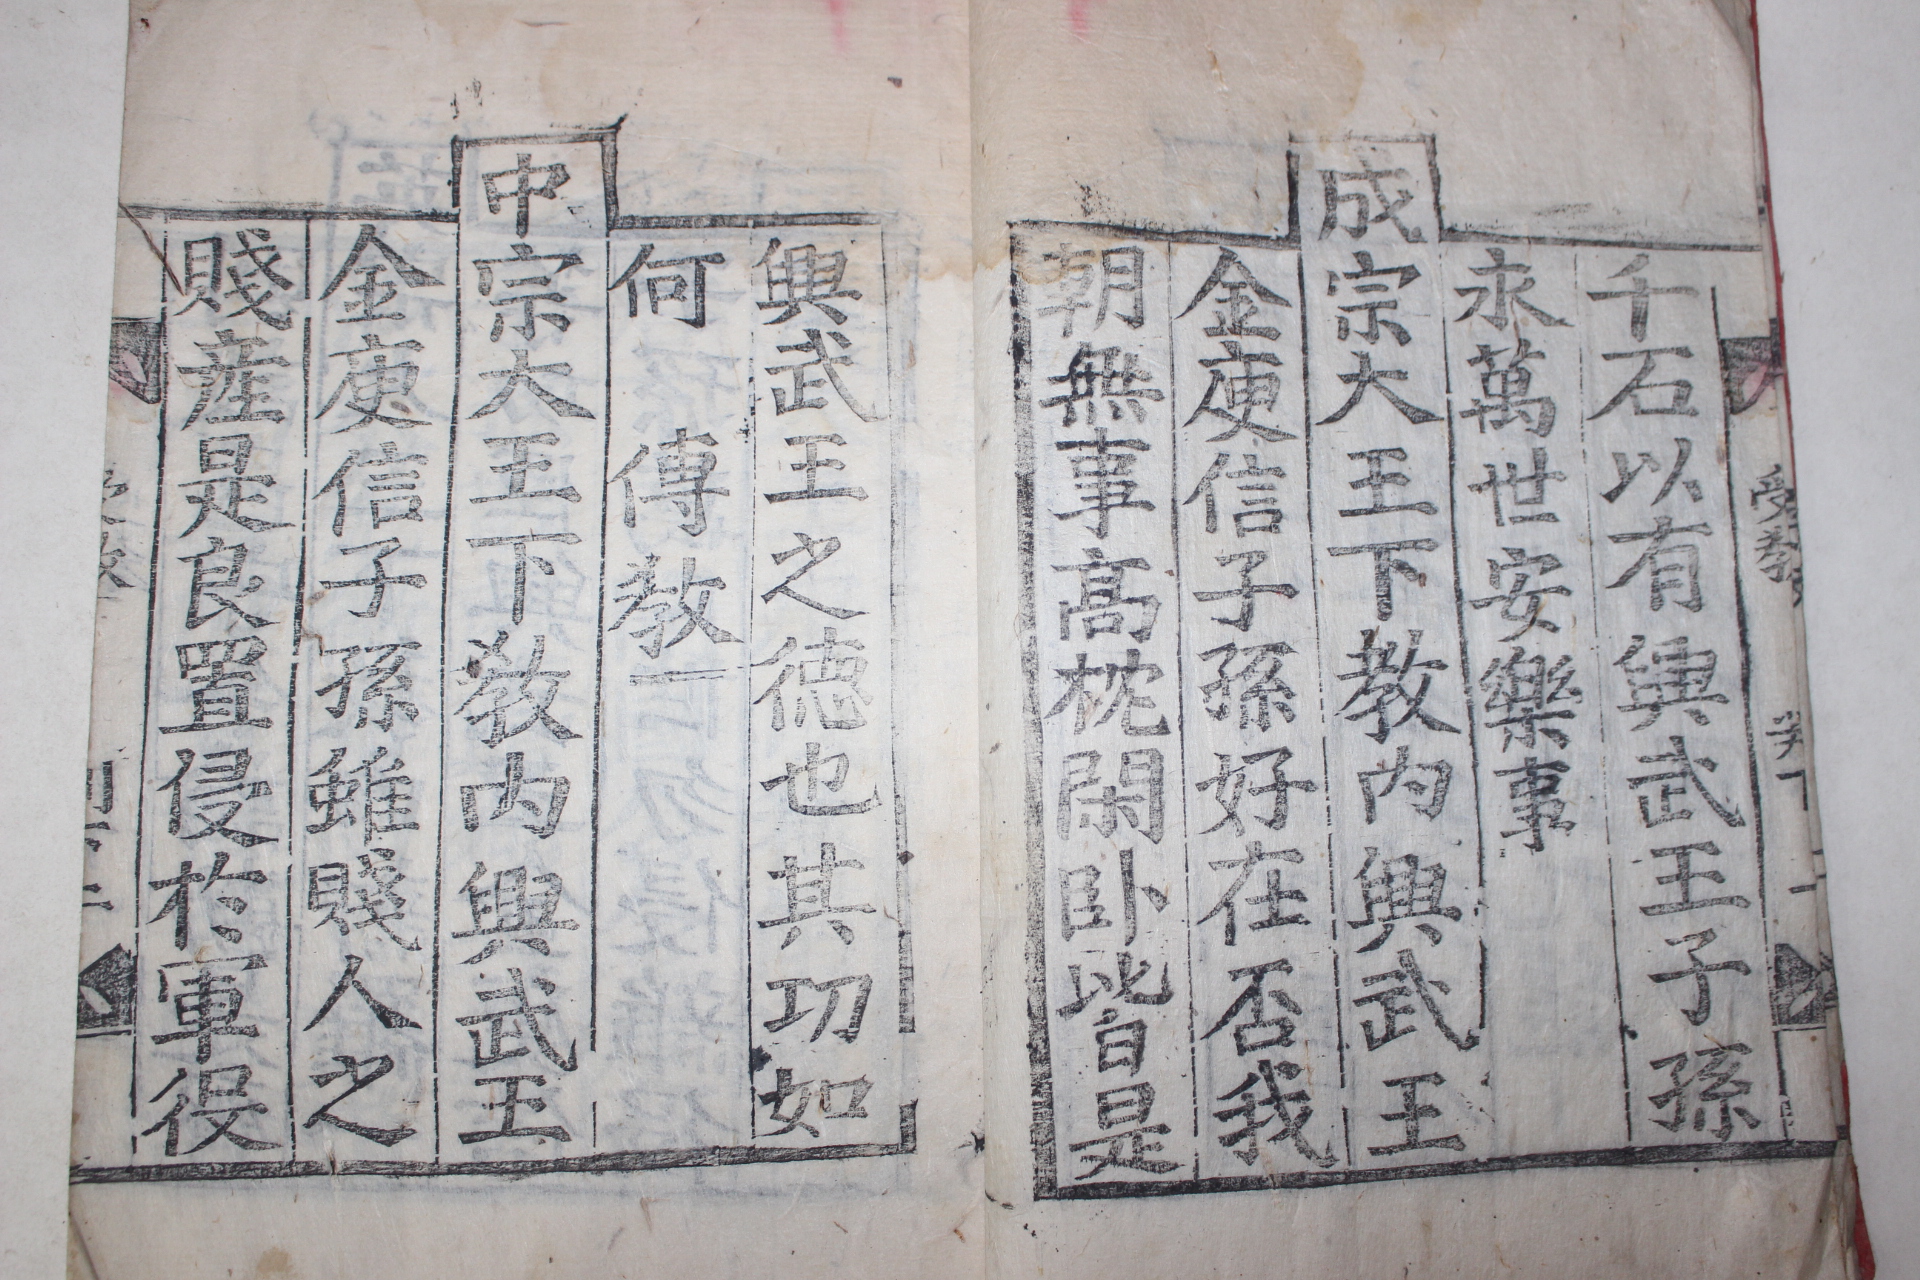 千石以有興武王子孫
永萬世安樂事
成宗大王下敎內興武王
金庾信子孫好在否我
朝無事高枕閑卧皆是
興武王之德也其功如
何傳敎
中宗大王下敎內興武王
金庾信子孫雖賤人之
賤産是良置侵於軍役
受敎